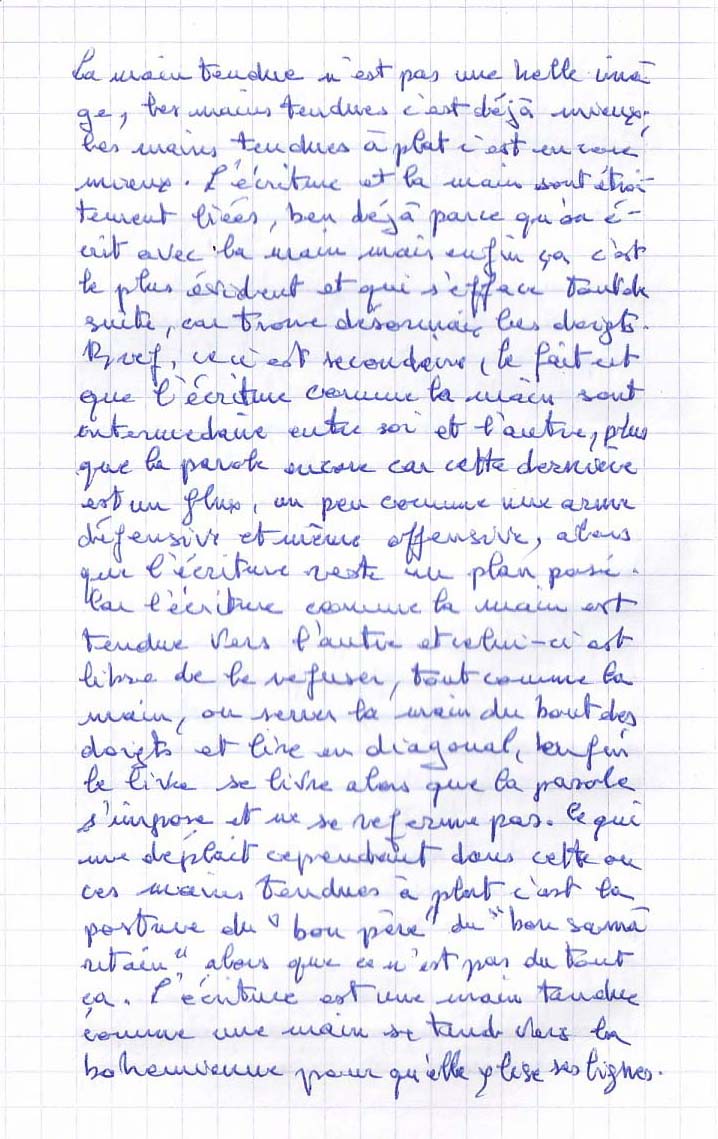 La main tendue n'est pas une belle ima-
ge, les mains tendues c'est déjà mieux,
les mains tendues à plat c'est encore
mieux. L'écriture et la main sont étroi-
tement liées, ben déjà parce qu'on é-
crit avec la main mais enfin ça c'est
le plus évident et qui s'efface tout de
suite, car trone désormais les doigts.
Bref, ceci est secondaire, le fait est
que l'écriture comme la main sont
intermedaire entre soi et l'autre, plus
que la parole encore car cette dernière
est un flux, un peu comme une arme
défensive et même offensive, alors
que l'écriture reste un plan posé.
Car l'écriture comme la main est
tendue vers l'autre et celui-ci est
libre de le refuser, tout comme la
main, ou serrer la main du bout des
doigts et lire en diagonal, enfin
le livre se livre alors que la parole
s'impose et ne se referme pas. Ce qui
me déplait cependant dans cette ou
ces mains tendues à plat c'est la
posture du "bon père" du "bon sama-
ritain", alors que ce n'est pas du tout
ça. L'écriture est une main tendue
comme une main se tend vers la
bohémienne pour qu'elle y lise ses lignes.